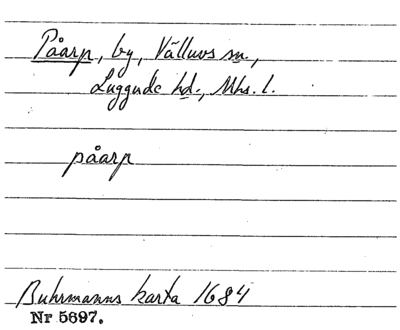 Påarp, by, Välluvs sn.,
Luggude hd., Mhs. l.
påarp
Buhrmanns karta 1684
Nr 5697.